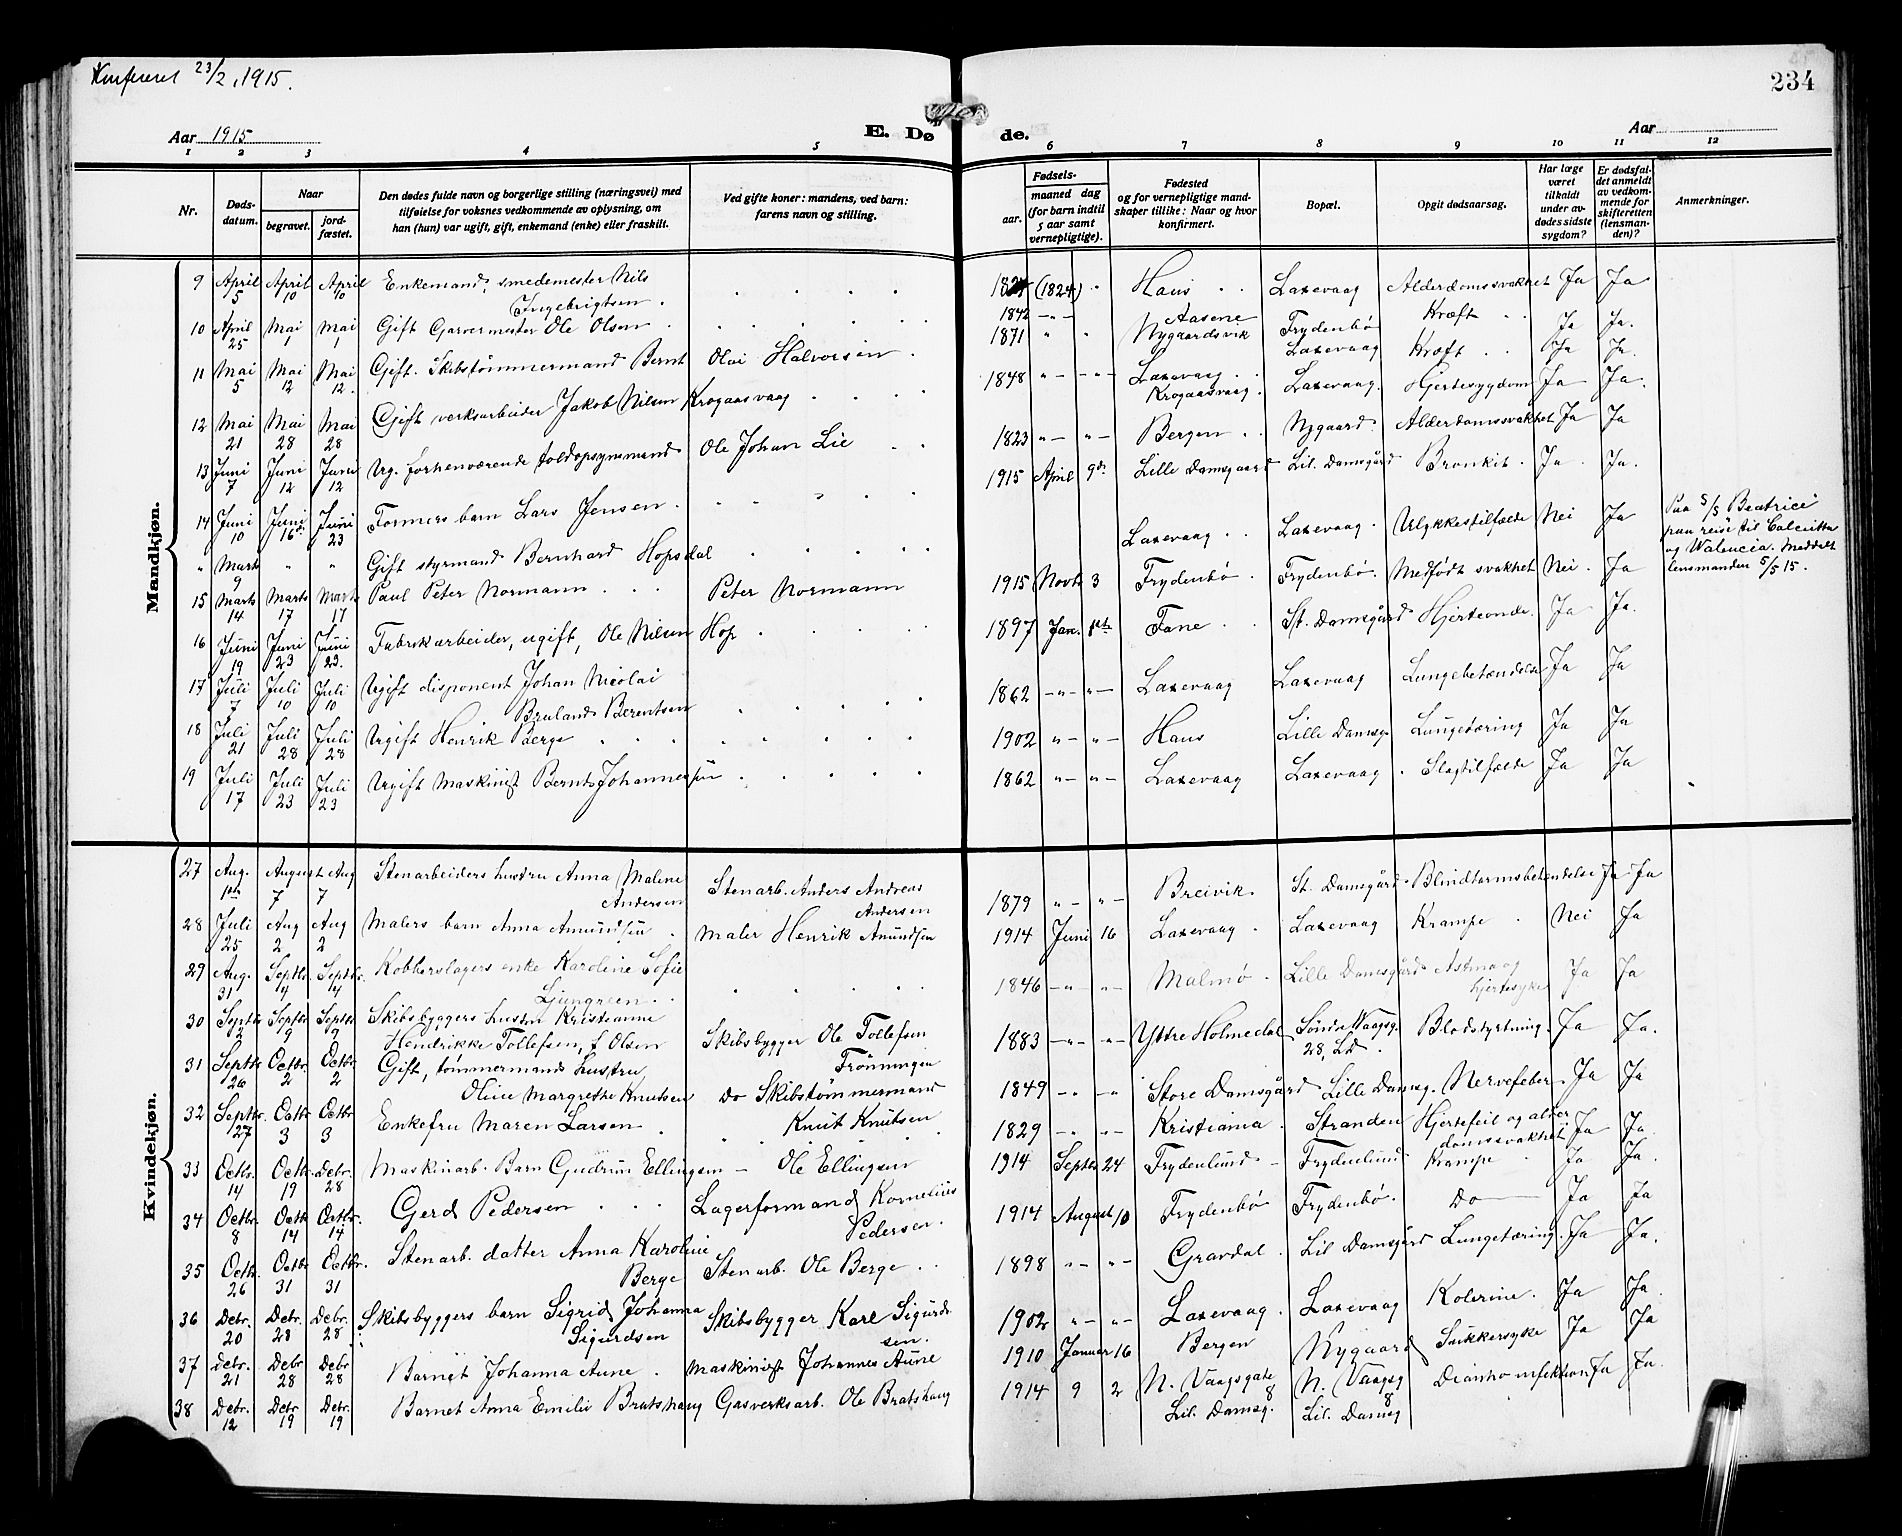 Konfereret 23/2, 1915.
234
Aar 1915
E. Dø de.
Aar
1 2 3 4 5 6 7 8 9 10 11 12
Nr.
Døds-
datum.
Naar
begravet.
jord-
fæstet.
Den dødes fulde navn og borgerlige stilling (næringsvei) med
tilføielse for voksnes vedkommende av oplysning, om
han (hun) var ugift, gift, enkemand (enke) eller fraskilt.
Ved gifte koner: mandens, ved barn:
farens navn og stilling.
Fødsels-
aar.
maaned dag
(for barn indtil
5 aar samt
vernepligtige).
Fødested
og for vernepligtige mand-
skaper tillike: Naar og hvor
konfirmert.
Bopæl.
Opgit dødsaarsag.
Har læge
været
tilkaldt
under av-
dødes sidste
sygdom?
Er dødsfal-
det anmeldt
av vedkom-
mende for
skifteretten
(lensman-
den)?
Anmerkninger.
Mandkjøn.
9 April 5 April 10 April 10 Enkemand, smedemester Nils (1824) Haus Laxevaag Alderdomssvakhet Ja Ja
Ingebrigtsen
10 April 25 Mai 1 Mai 1 Gift Garvermester Ole Olsen 1842 Aasene Frydenbø Kræft Ja Ja.
1871 Nygaardsvik Laxevaag Kræft Ja Ja.
11 Mai 5 Mai 12 Mai 12. Gift. Skibstømmermand Bernt Olai Halvorsen 1848 Laxevaag Laxevaag. Hjertesygdom Ja Ja.
12 Mai 21 Mai 28 Mai 28 Gift verksarbeider Jakob Nilsen Krogaasvaag Krogaasvaag.
13 Juni 7 Juni 12 Juni 12 Ug. forhenværende toldopsynsmand Ole Johan Lie 1823 Bergen Nygaard Alderdomssvakhet Ja Ja
14 Juni 10 Juni 16 Juni 23 Formers barn Lars Jensen 1915 April 9de Lille Damsgaard Lil. Damsgård Bronkit. Ja Ja.
" Marts 9 " " Gift styrmand Bernhard Hopsdal Laxevaag Laxevaag. Ulykkestilfælde Nei Ja
Paa S/S Beatrice
paa reise til Calcutta
og Walencia. Meddelt
lensmanden 5/5 15.
15 Marts 14 Marts 17 Marts 17 Paul Peter Normann Peter Normann 1915 Novbr 3 Frydenbø Frydenbø. Medfødt svakhet Nei Ja
16 Juni 19 Juni 23 Juni 23. Fabrikarbeider, ugift, Ole Nilsen Hop 1897 Jan. 1ste Fane St. Damsgård Hjerteonde. Ja Ja.
17 Juli 7 Juli 10 Juli 10 Ugift disponent Johan Nicolai 1862 Laxevaag Laxevaag Lungebetændelse Ja Ja
Bruland Berentsen
18 Juli 21 Juli 28 Juli 28 Ugift Henrik Berge 1902 Haus Lille Damsg. Lungetæring Ja Ja
19 Juli 17 Juli 23 Juli 23 Ugift Maskinist Bernt Johannessen 1862 Laxevaag Laxevaag Slagtilfælde Ja Ja
Kvindekjøn.
27 Aug. 1ste August 7 Aug 7 Stenarbeiders hustru Anna Malene Stenarb. Anders Andreas 1879 Breivik. St. Damsgård. Blindtarmsbetendelse Ja Ja
Andersen Andersen
28 Juli 25 Aug 2 Aug 2 Malers barn Anna Amundsen Maler Henrik Amundsen 1914 Juni 16 Laxevaag Laxevaag Krampe Nei Ja
29 Aug. 31 Septbr. 4 Septbr. 4 Kobberslagers enke Karoline Sofie 1846 Malmø Lille Damsgård Astma og Ja Ja
Ljungreen hjertesyke
30 Septbr 2 Septbr 9 Septbr 9 Skibsbyggers hustru Kristianne
Hendrikke Tollefsen, f. Olsen Skibsbygger Ole Tollefsen 1883 Yttre Holmedal Søndre Vaagsg. Blodstyrtning. Ja Ja.
28, Ld.
31 Septbr 26 Octbr. 2 Octbr. 2 Gift, tømmermands hustru Frønningen
Oline Margrethe Knutsen do Skibstømmermand 1849 Store Damsgård Lille Damsg. Nervefeber. Ja Ja
Knut Knutsen
32 Septbr. 27 Octbr 3 Octbr 3 Enkefru Maren Larsen 1829 Kristiania Stranden Hjertefeil og alder Ja Ja.
domssvakhet
33 Octbr. 14 Octbr. 19 Octbr. 28 Maskinarb. Barn Gudrun Ellingsen – Ole Ellingsen 1914 Septbr 24 Frydenlund – Frydenlund Krampe Ja Ja.
34 Octbr. 8 Octbr 14 Octbr. 14 Gerd Pedersen Lagerformand Kornelius 1914 August 10 Frydenbø Frydenbø. Do Ja Ja
Pedersen.
35 Octbr. 26 Octbr 31 Octbr. 31 Stenarb. datter Anna Karoline Stenarb. Ole Berge 1898 Gravdal. Lil Damsgård Lungetæring. Ja Ja.
Berge
36 Debr. 20 Debr. 28 Debr. 28 Skibsbyggers barn Sigrid Johanna Skibsbygger Karl Sigurd- 1902 Laxevaag. Laxevaag Kolerine. Ja Ja.
Sigurdsen sen.
37 Debr. 21 Debr 28 Debr 28 Barnet Johanna Aune Maskinist Johannes Aune 1910 Januar 16 Bergen Nygaard Sukkersyke Ja Ja
38 Debr. 12 Debr 19 Debr. 19 Barnet Anna Emilie Bratshaug Gasverksarb. Ole Bratshaug 1914 9 2 N. Vaagsgate 8 N. Vaagsg 8 Ja Ja.
Lil. Damsg. Lil. Damsg